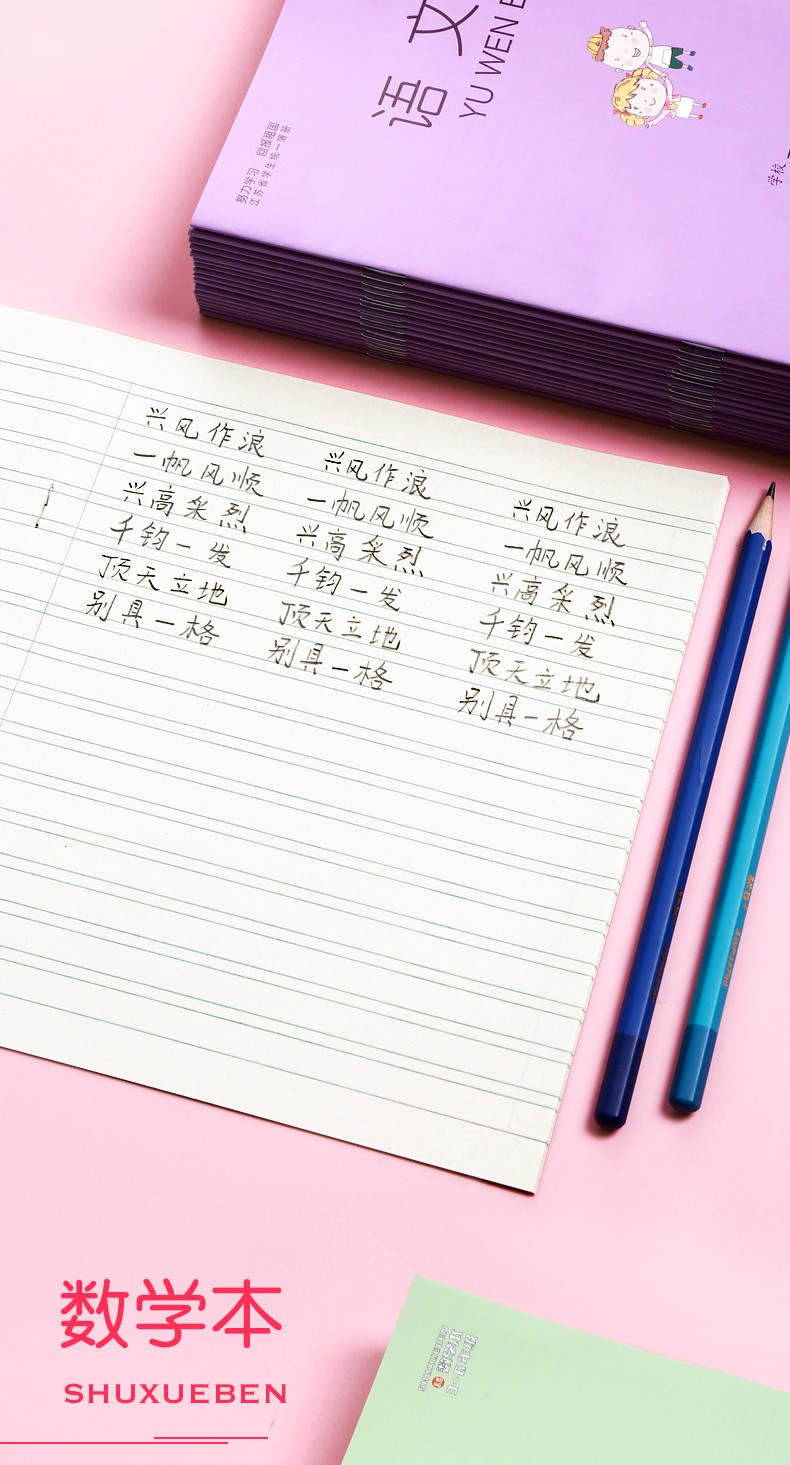 语文
YU WEN B
努力学习 回报祖国
江苏省学生统一簿册
学校
兴风作浪 兴风作浪 兴风作浪
一帆风顺 一帆风顺 一帆风顺
兴高采烈 兴高采烈 兴高采烈
千钧一发 千钧一发 千钧一发
顶天立地 顶天立地 顶天立地
别具一格 别具一格 别具一格
数学本
SHUXUEBEN